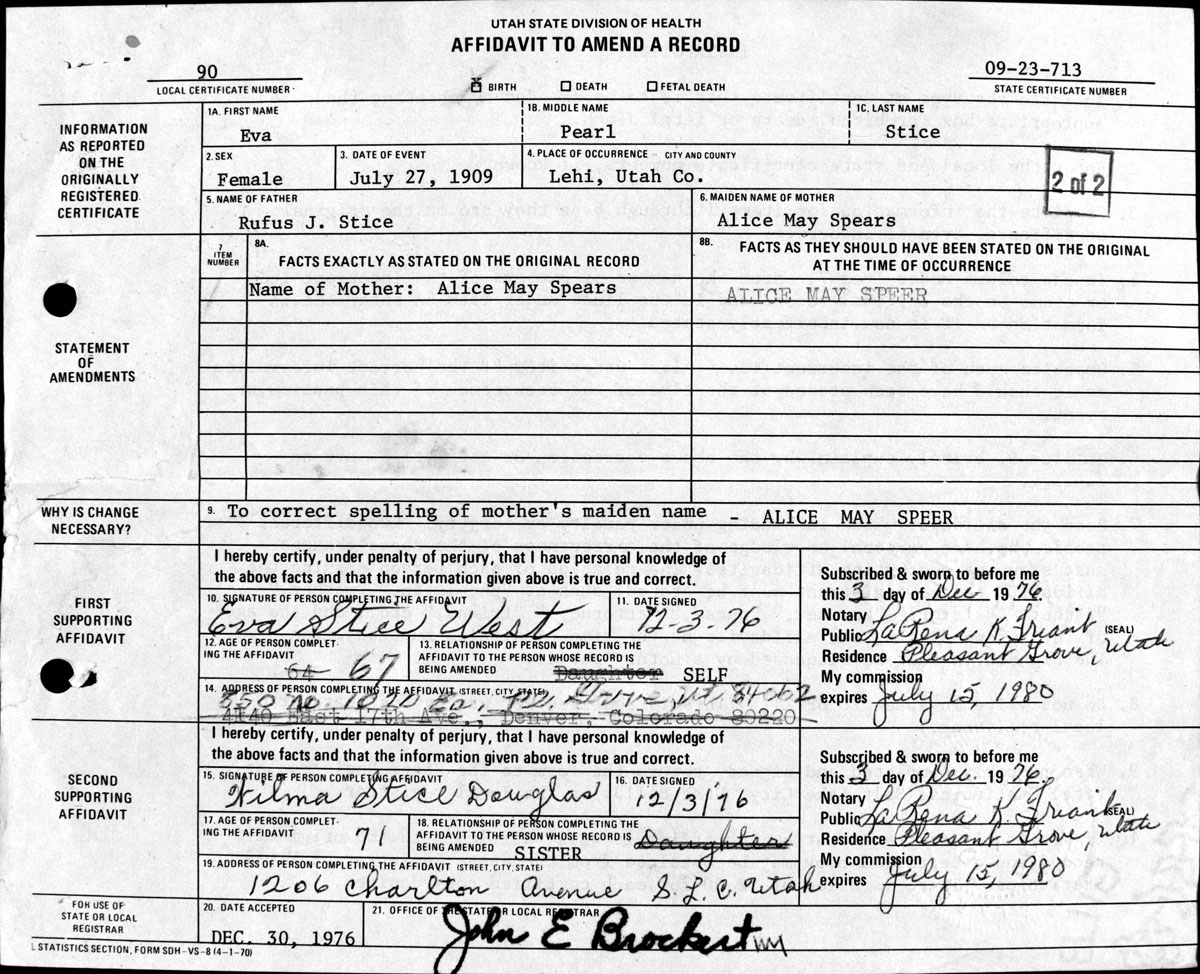 UTAH STATE DIVISION OF HEALTH
AFFIDAVIT TO AMEND A RECORD
90
LOCAL CERTIFICATE NUMBER
BIRTH DEATH FETAL DEATH
09-23-713
STATE CERTIFICATE NUMBER
INFORMATION AS REPORTED ON THE ORIGINALLY REGISTERED CERTIFICATE
1A. FIRST NAME 1B. MIDDLE NAME 1C. LAST NAME
Eva Pearl Stice
2. SEX 3. DATE OF EVENT 4. PLACE OF OCCURRENCE - CITY AND COUNTY
Female July 27, 1909 Lehi, Utah Co.
2 of 2
5. NAME OF FATHER 6. MAIDEN NAME OF MOTHER
Rufus J. Stice Alice May Spears
STATEMENT OF AMENDMENTS
7 ITEM NUMBER
8A. FACTS EXACTLY AS STATED ON THE ORIGINAL RECORD
8B. FACTS AS THEY SHOULD HAVE BEEN STATED ON THE ORIGINAL
AT THE TIME OF OCCURRENCE
Name of Mother: Alice May Spears ALICE MAY SPEER
WHY IS CHANGE NECESSARY?
9. To correct spelling of mother's maiden name - ALICE MAY SPEER
FIRST SUPPORTING AFFIDAVIT
I hereby certify, under penalty of perjury, that I have personal knowledge of
the above facts and that the information given above is true and correct.
10. SIGNATURE OF PERSON COMPLETING THE AFFIDAVIT 11. DATE SIGNED
Eva Stice West 12-3-76
12. AGE OF PERSON COMPLETING THE AFFIDAVIT
64 67
13. RELATIONSHIP OF PERSON COMPLETING THE
AFFIDAVIT TO THE PERSON WHOSE RECORD IS
BEING AMENDED Daughter SELF
14. ADDRESS OF PERSON COMPLETING THE AFFIDAVIT (STREET, CITY, STATE)
850 No. Ea., Pl. Grove Ut 84062
4140 East 17th Ave., Denver, Colorado 80220
Subscribed & sworn to before me
this 3 day of Dec 19 76.
Notary
Public LaRena K. Friant (SEAL)
Residence Pleasant Grove, Utah
My commission
expires July 15, 1980
SECOND SUPPORTING AFFIDAVIT
I hereby certify, under penalty of perjury, that I have personal knowledge of
the above facts and that the information given above is true and correct.
15. SIGNATURE OF PERSON COMPLETING AFFIDAVIT 16. DATE SIGNED
Wilma Stice Douglas 12/3/76
17. AGE OF PERSON COMPLETING THE AFFIDAVIT
71
18. RELATIONSHIP OF PERSON COMPLETING THE
AFFIDAVIT TO THE PERSON WHOSE RECORD IS
BEING AMENDED SISTER Daughter
19. ADDRESS OF PERSON COMPLETING THE AFFIDAVIT (STREET, CITY, STATE)
1206 Charlton Avenue S.L.C. Utah
Subscribed & sworn to before me
this 3 day of Dec. 19 76.
Notary
Public LaRena K. Friant (SEAL)
Residence Pleasant Grove, Utah
My commission
expires July 15, 1980
FOR USE OF STATE OR LOCAL REGISTRAR
20. DATE ACCEPTED 21. OFFICE OF THE STATE OR LOCAL REGISTRAR
DEC. 30, 1976 John E Brockert
L STATISTICS SECTION, FORM SDH-VS-8 (4-1-70)